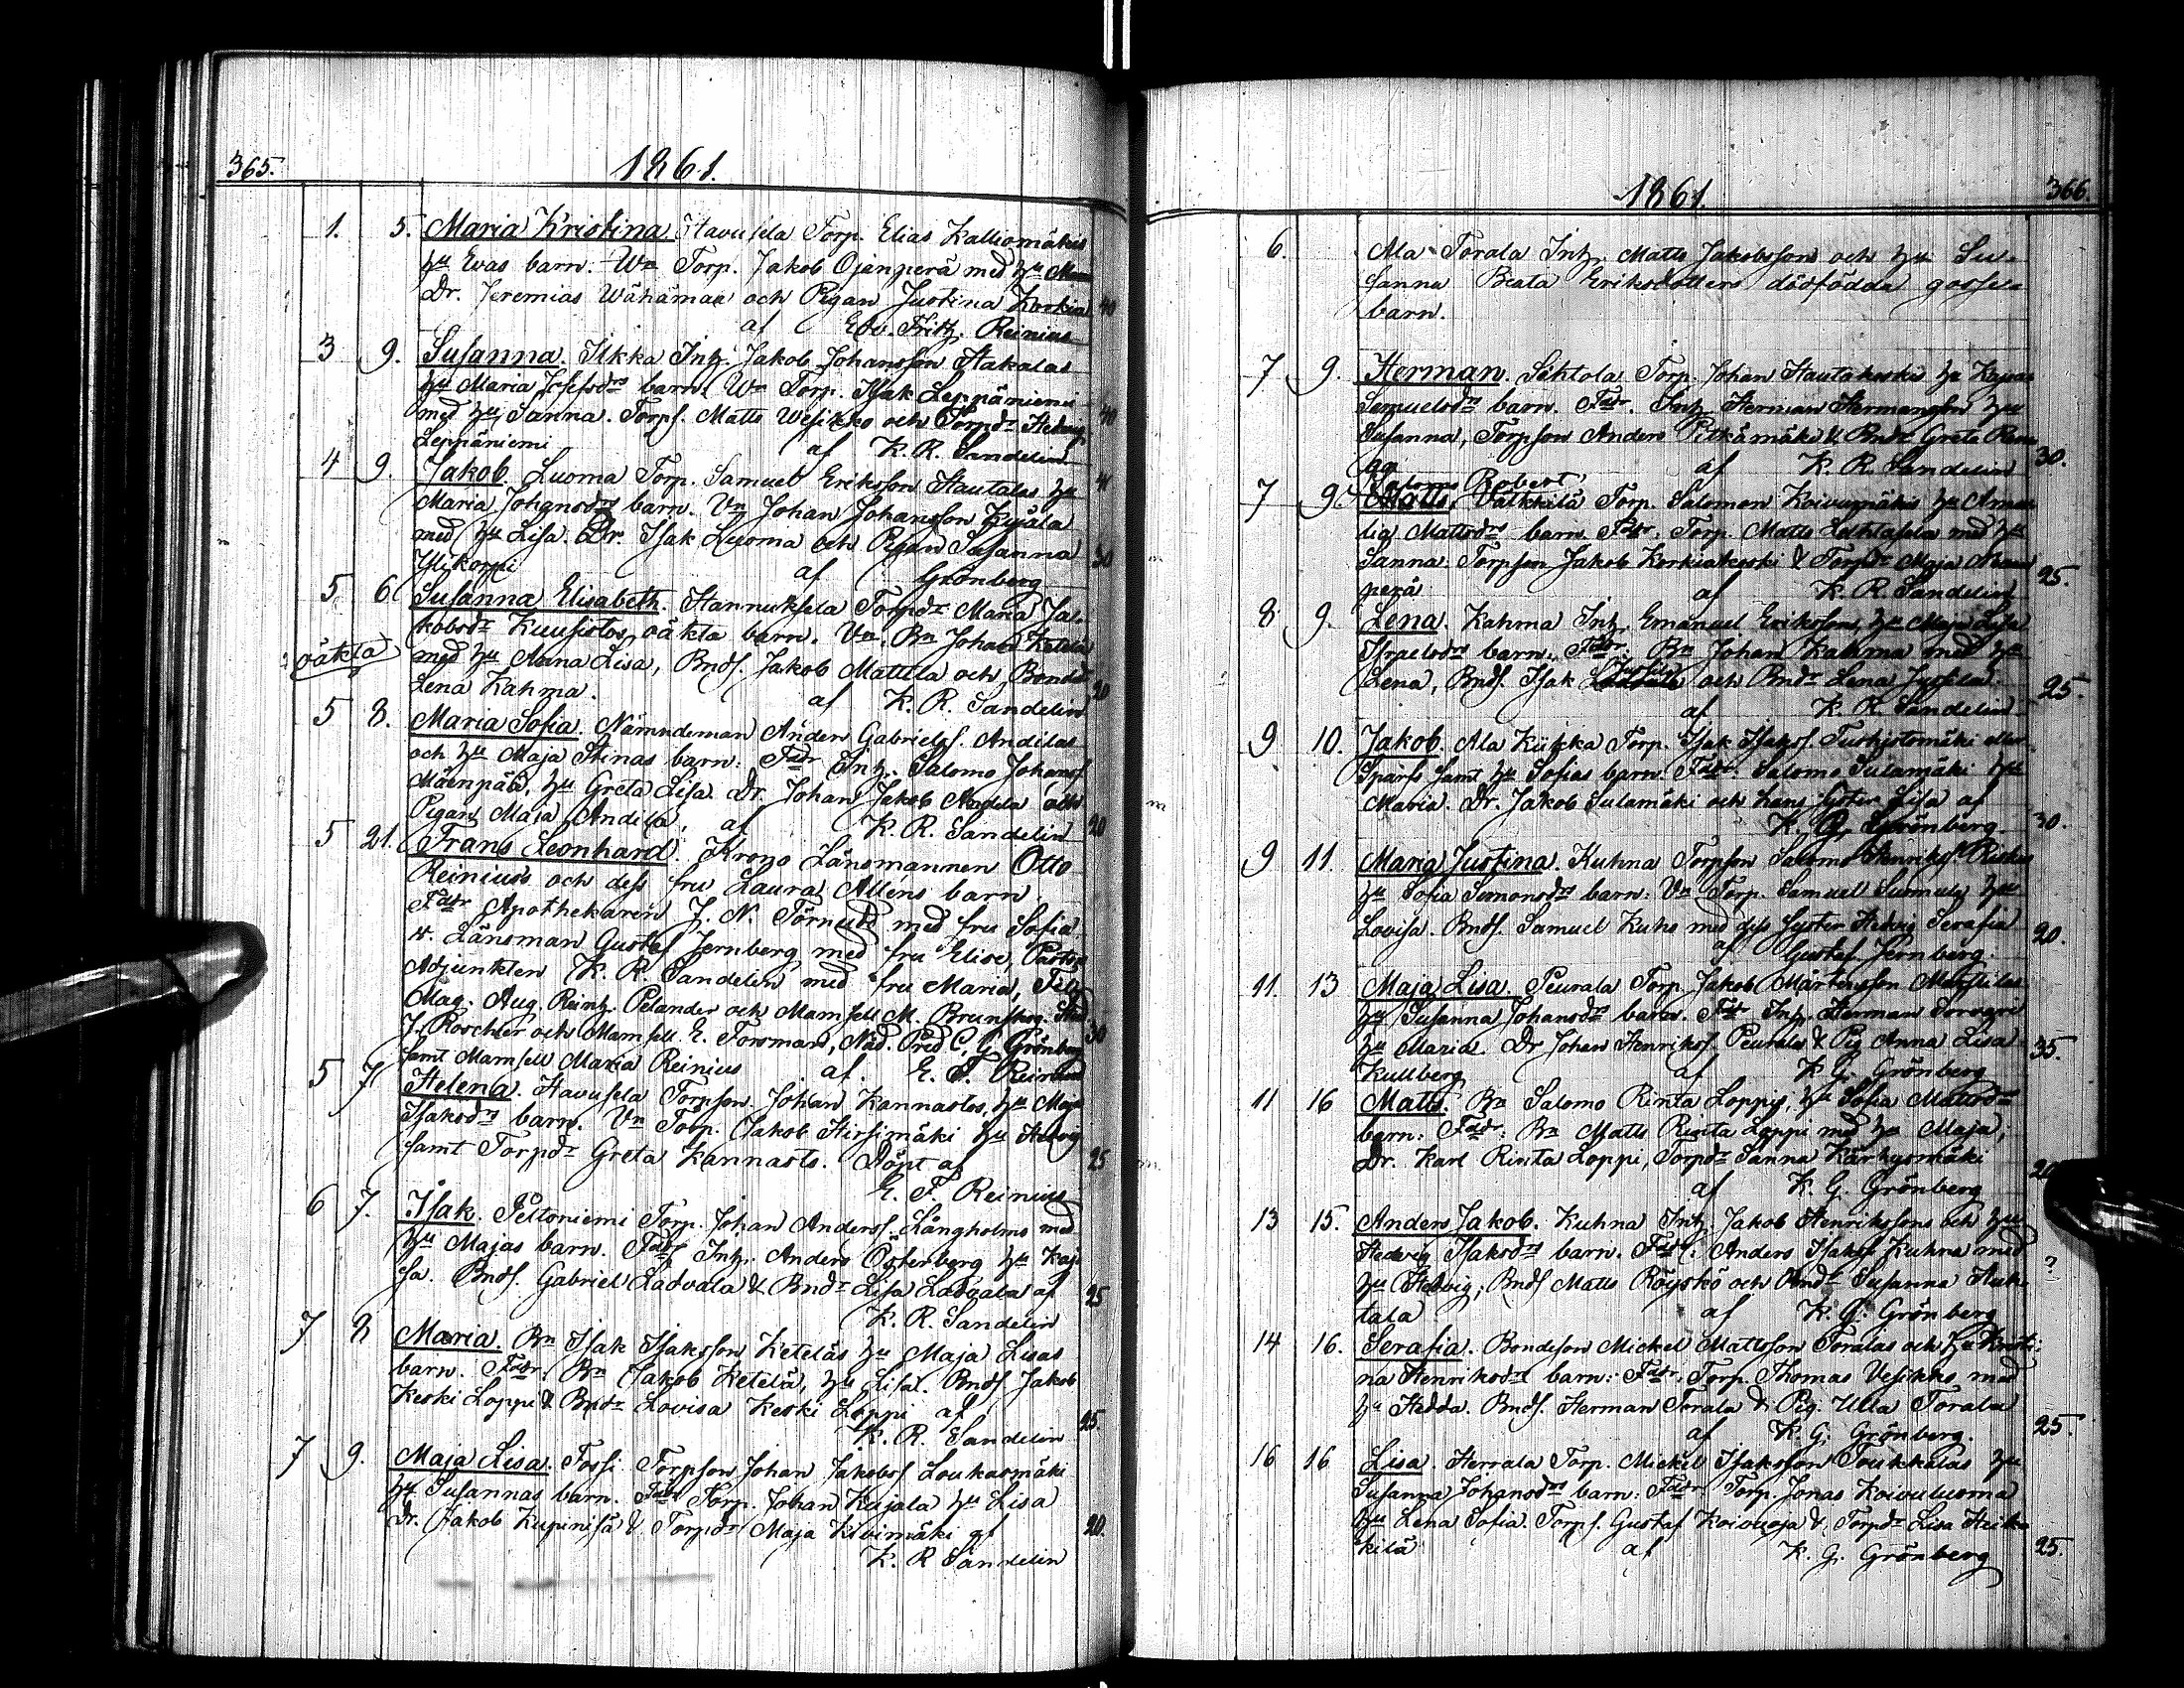 365.
1861.
1. 5. Maria Kristina Havusela Torp. Elias Kalliomäkis
hu Evas barn. Wn Torp. Jakob Ojanperä med hu
Dr. Jeremias Wähämaa och Pigan Justina Korkia 40
af Edv. Fritz. Reinius
3 9. Susanna. Ilkka Inh. Jakob Johansson Hakalas
hu Maria Josefsdrs barn. Wn Torp. Isak Leppäniemi
med hu Sanna. Torps. Matts Wesikko och Torpdr Hedvig 40
Leppäniemi af K. R. Sandelin
4 9. Jakob. Luoma Torp. Samuel Eriksson Hautalas hu 41
Maria Johansdrs barn. Vn Johan Johansson Kujala
med hu Lisa. Dr. Isak Luoma och Pigan Susanna 30
Ylikorpi af Grönberg
5 6 Susanna Elisabeth. Hannuksela Torpdr Maria Ja-
kobsdr Kuusistos oäkta barn. Vn. Bn Johan Ketelä
oäkta med hu Anna Lisa, Bnds. Jakob Mattila och Bondd
Lena Kahma. af K. R. Sandelin 20
5 8. Maria Sofia. Nämndeman Anders Gabrielss. Andilas
och hu Maja Stinas barn: Fadr Inh. Salomo Johanss.
Mäenpää, hu Greta Lisa. Dr. Johan Jakob Andila och
Pigan Maja Andila af K. R. Sandelin 20
5 21. Frans Leonhard. Krono Länsmannen Otto
Reinius's och dess fru Laura Aliens barn
Fadr Apothekaren J. N. Törnudd med fru Sofia
v. Länsman Gustaf Jernberg med fru Elise, Pastors
Adjunkten K. R. Sandelin med fru Maria, Fil.
Mag. Aug. Reinh. Pelander och Mamsell M. Brunskog. Stud.
J. Roschier och Mamsell E. Forsman, Nåd. Pred C. G. Grönberg 30
samt Mamsell Maria Reinius af E. F. Reinius
5 7 Helena. Havusela Torpson Johan Kannastos, hu Maja
Isaksdrs barn. Vn Torp. Jakob Hirsimäki hu Hedvig
samt Torpdr Greta Kannasto. Döpt af 25
E. F. Reinius
6 7. Isak. Peltoniemi Torp. Johan Anderss. Långholms med
hu Majas barn. Fadr Inh. Anders Österberg hu Kaj-
sa. Bnds. Gabriel Ladvala & Bndr Lisa Ladvala af 25
K. R. Sandelin
7 8 Maria. Bn Isak Isaksson Keteläs hu Maja Lisas
barn. Fadr. Bn Jakob Ketelä, hu Lisa. Bnds Jakob
Keski Loppi & Bndr Lovisa Keski Loppi af 25.
K. R. Sandelin
7 9. Maja Lisa. Fossi Torpson Johan Jakobss Loukasmäki
hu Susannas barn. Fadr Torp. Johan Kujala hu Lisa
Dr. Jakob Kupinisä & Torpdr Maja Kivimäki af 20.
K. R Sandelin
1861. 366.
6. Ala Torala Inh. Matts Jakobssons och hu Su-
sanna Beata Eriksdotters dödfödda gosse-
barn.
7 9. Herman. Sihtola Torp. Johan Hautakoski hu Kajsa
Samuelsdrs barn. Fadr. Inh. Herman Hermansson hu
Susanna, Torpson Anders Pitkämäki & Bndr Greta
af K. R. Sandelin 30.
Salomo Robert
7 9. Matts. Välkkilä Torp. Salomon Koivumäkis hu Ama-
lia Mattsdrs barn. Fadr. Torp. Matts Lehtasela med hu
Sanna. Torpson Jakob Korkiakoski & Torpdr Maja
perä af K. R. Sandelin 25.
8 9. Lena. Kahma Inh. Emanuel Eriksson, hu Maja Lisa
Israelsdrs barn. Fadr. Bn Johan Kahma med hu
Lena, Bnds. Isak Jussila och Bndr Lena Jussila
af K. R. Sandelin 25.
9 10. Jakob. Ala Kiikka Torp. Isak Isakss. Tuohistomäki eller
Sparfs samt hu Sofias barn. Fadr. Salomo Sulamäki hu
Maria. Dr. Jakob Sulamäki och hans syster Lisa af
K. G. Grönberg 30.
9 11 Maria Justina. Kuhna Torpson Salomo Henrikss Riskus
hu Sofia Simonsdrs barn: Vn Torp. Samuel Surmula hu
Lovisa. Bnds. Samuel Kuho med dess syster Hedvig Serafia 20.
af Gustaf Jernberg.
11. 13 Maja Lisa. Peurala Torp. Jakob Mårtensson Mattilas
hu Susanna Johansdrs barn. Fadr Inh. Herman Sorvari
hu Maria. Dr Johan Henrikss. Peurala & Pig Anna Lisa 35.
Kullberg af K G. Grönberg
11 16 Matts. Bn Salomo Rinta Loppis, hu Sofia Mattsdrs
barn: Fadr: Bn Matts Rinta Loppi med hu Maja;
Dr. Karl Rinta Loppi, Torpdr Sanna Kärkysmäki 20
af K. G. Grönberg
13 15. Anders Jakob. Kuhna Inh. Jakob Henrikssons och hu
Hedvig Isaksdrs barn. Fadr. Anders Isakss Kuhna med
hu Hedvig, Bnds Matts Röyskö och Bndr Susanna Hau- ?
tala af K. G. Grönberg
14 16. Serafia. Bondeson Mickel Mattsson Toralas och hu Kristi-
na Henriksdrs barn: Fadr. Torp. Thomas Vesikko med
hu Hedda. Bnds. Herman Torala & Pig. Ulla Torala
af K. G. Grönberg. 25.
16 16 Lisa. Herrala Torp. Mickel Isaksson Toukkalas hu
Susanna Johansdrs barn: Fadr. Torp. Jonas Koivuluoma
hu Lena Sofia. Torps. Gustaf Koivuoja &. Torpdr Lisa Heik-
kilä af K. G. Grönberg 25.